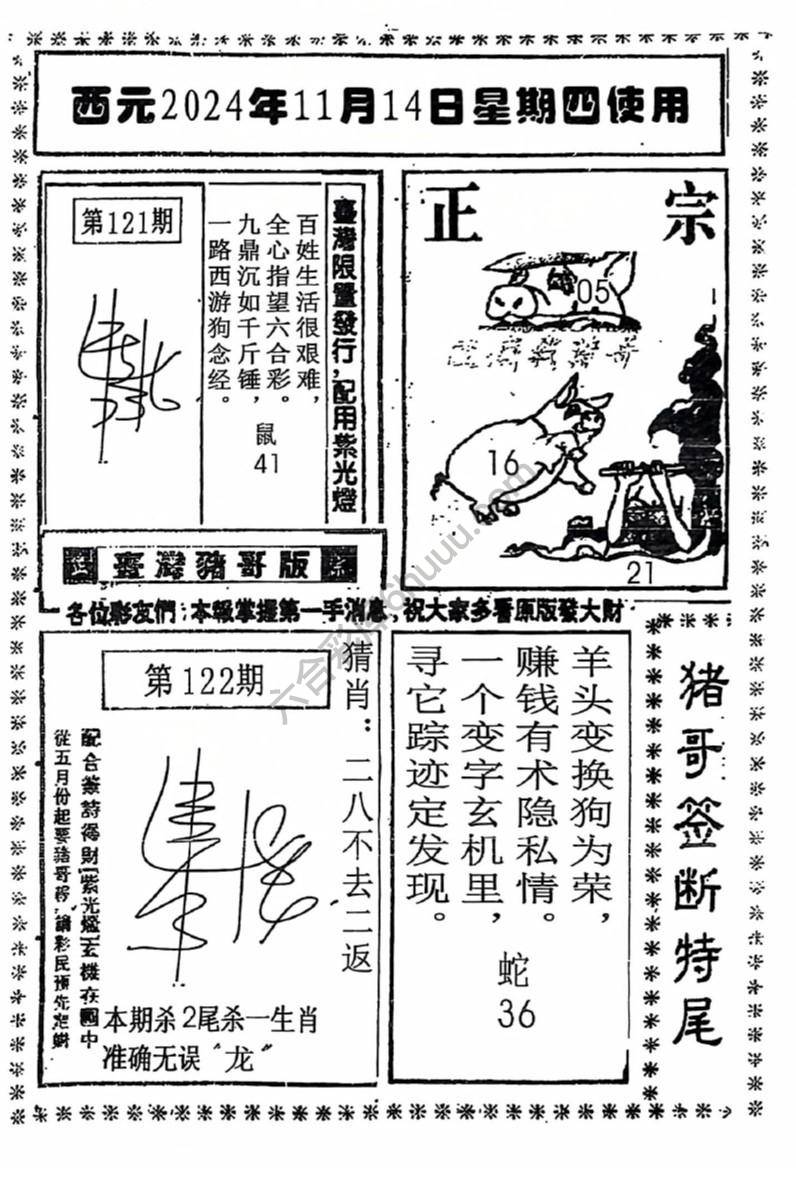 西元2024年11月14日星期四使用
第121期
臺灣限量發行,配用紫光燈
百姓生活很艰难,
全心指望六合彩。
九鼎沉如千斤锤,
一路西游狗念经。
鼠
41
正宗
05
16
21
臺灣豬哥版
各位彩友們:本報掌握第一手消息,祝大家多看原版發大財
第122期
猜肖:二八不去二返
配合簽詩得財(紫光燈)玄機在圖中
從五月份起要豬哥
彩民預先定
本期杀2尾杀一生肖
准确无误“龙”
羊头变换狗为荣,
赚钱有术隐私情。
一个变字玄机里,
寻它踪迹定发现。
蛇
36
猪哥签断特尾
huuu.com